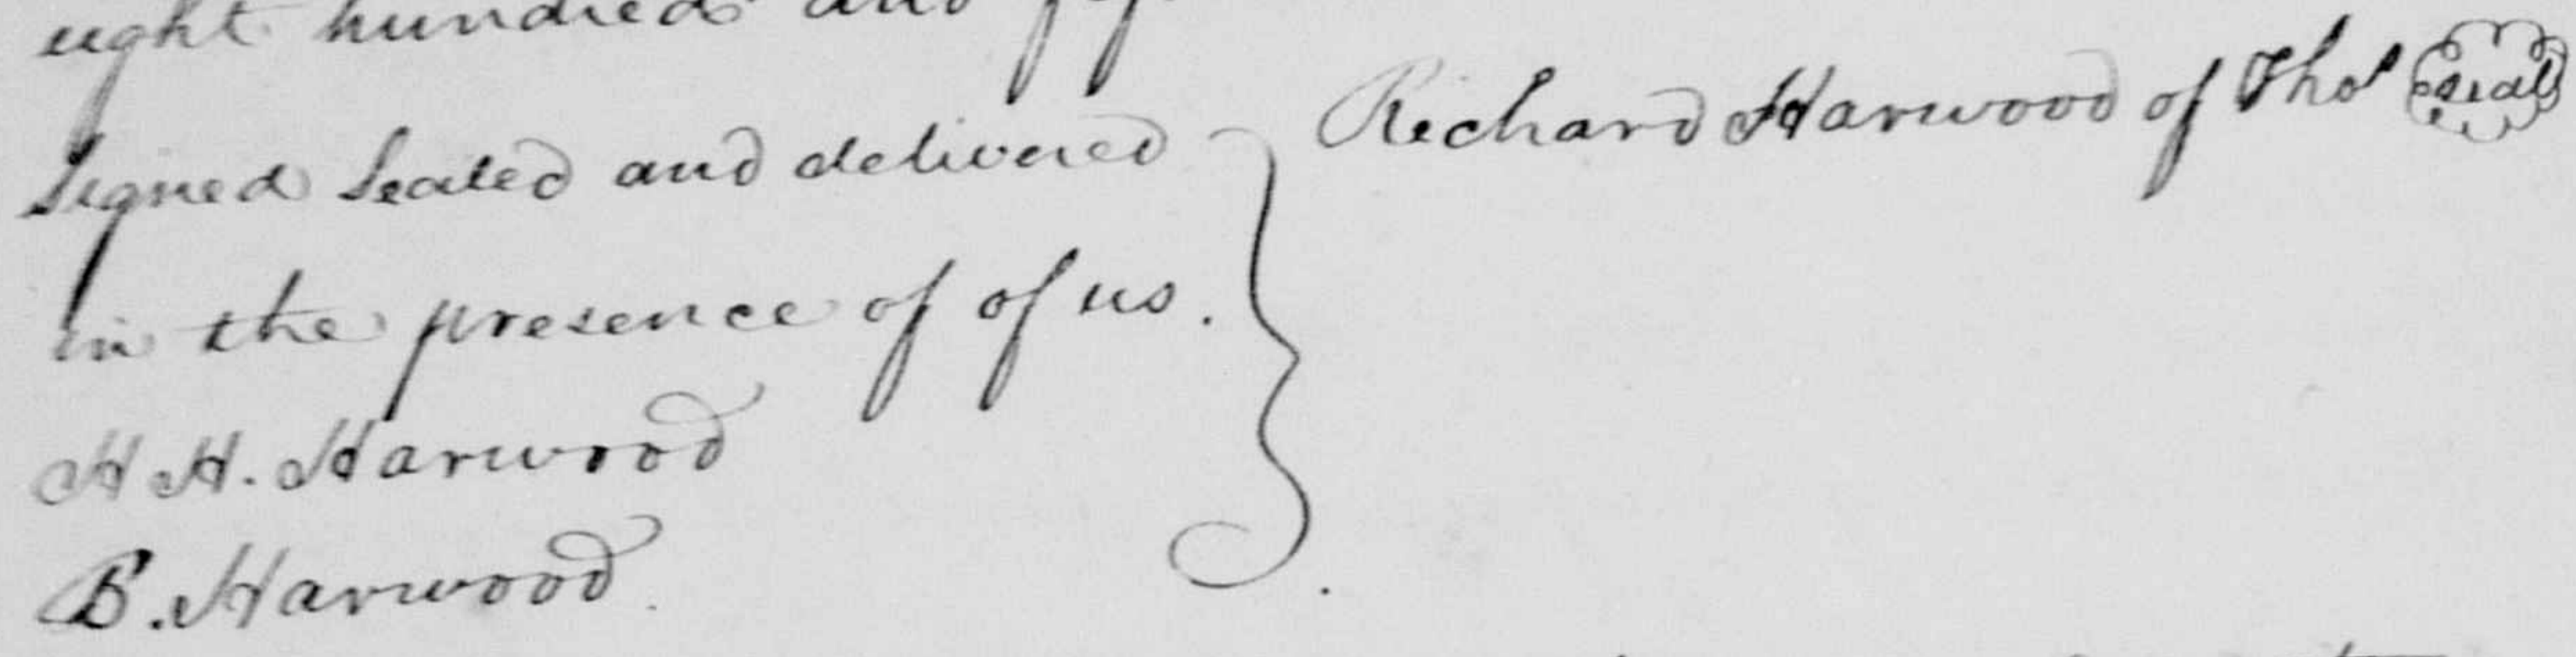 eight hundred and
Signed Sealed and delivered
in the presence of of us.
H H. Harwood
B. Harwood.
Richard Harwood of Thos seal